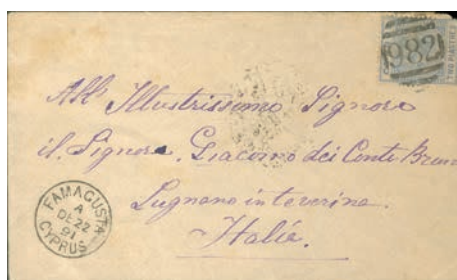 982
TWO PIASTRES
All' Illustrissimo Signore
il. Signore. Giacomo dei Conti
Lugnano in teverina.
Italie.
FAMAGUSTA
A
DE 22
91
CYPRUS